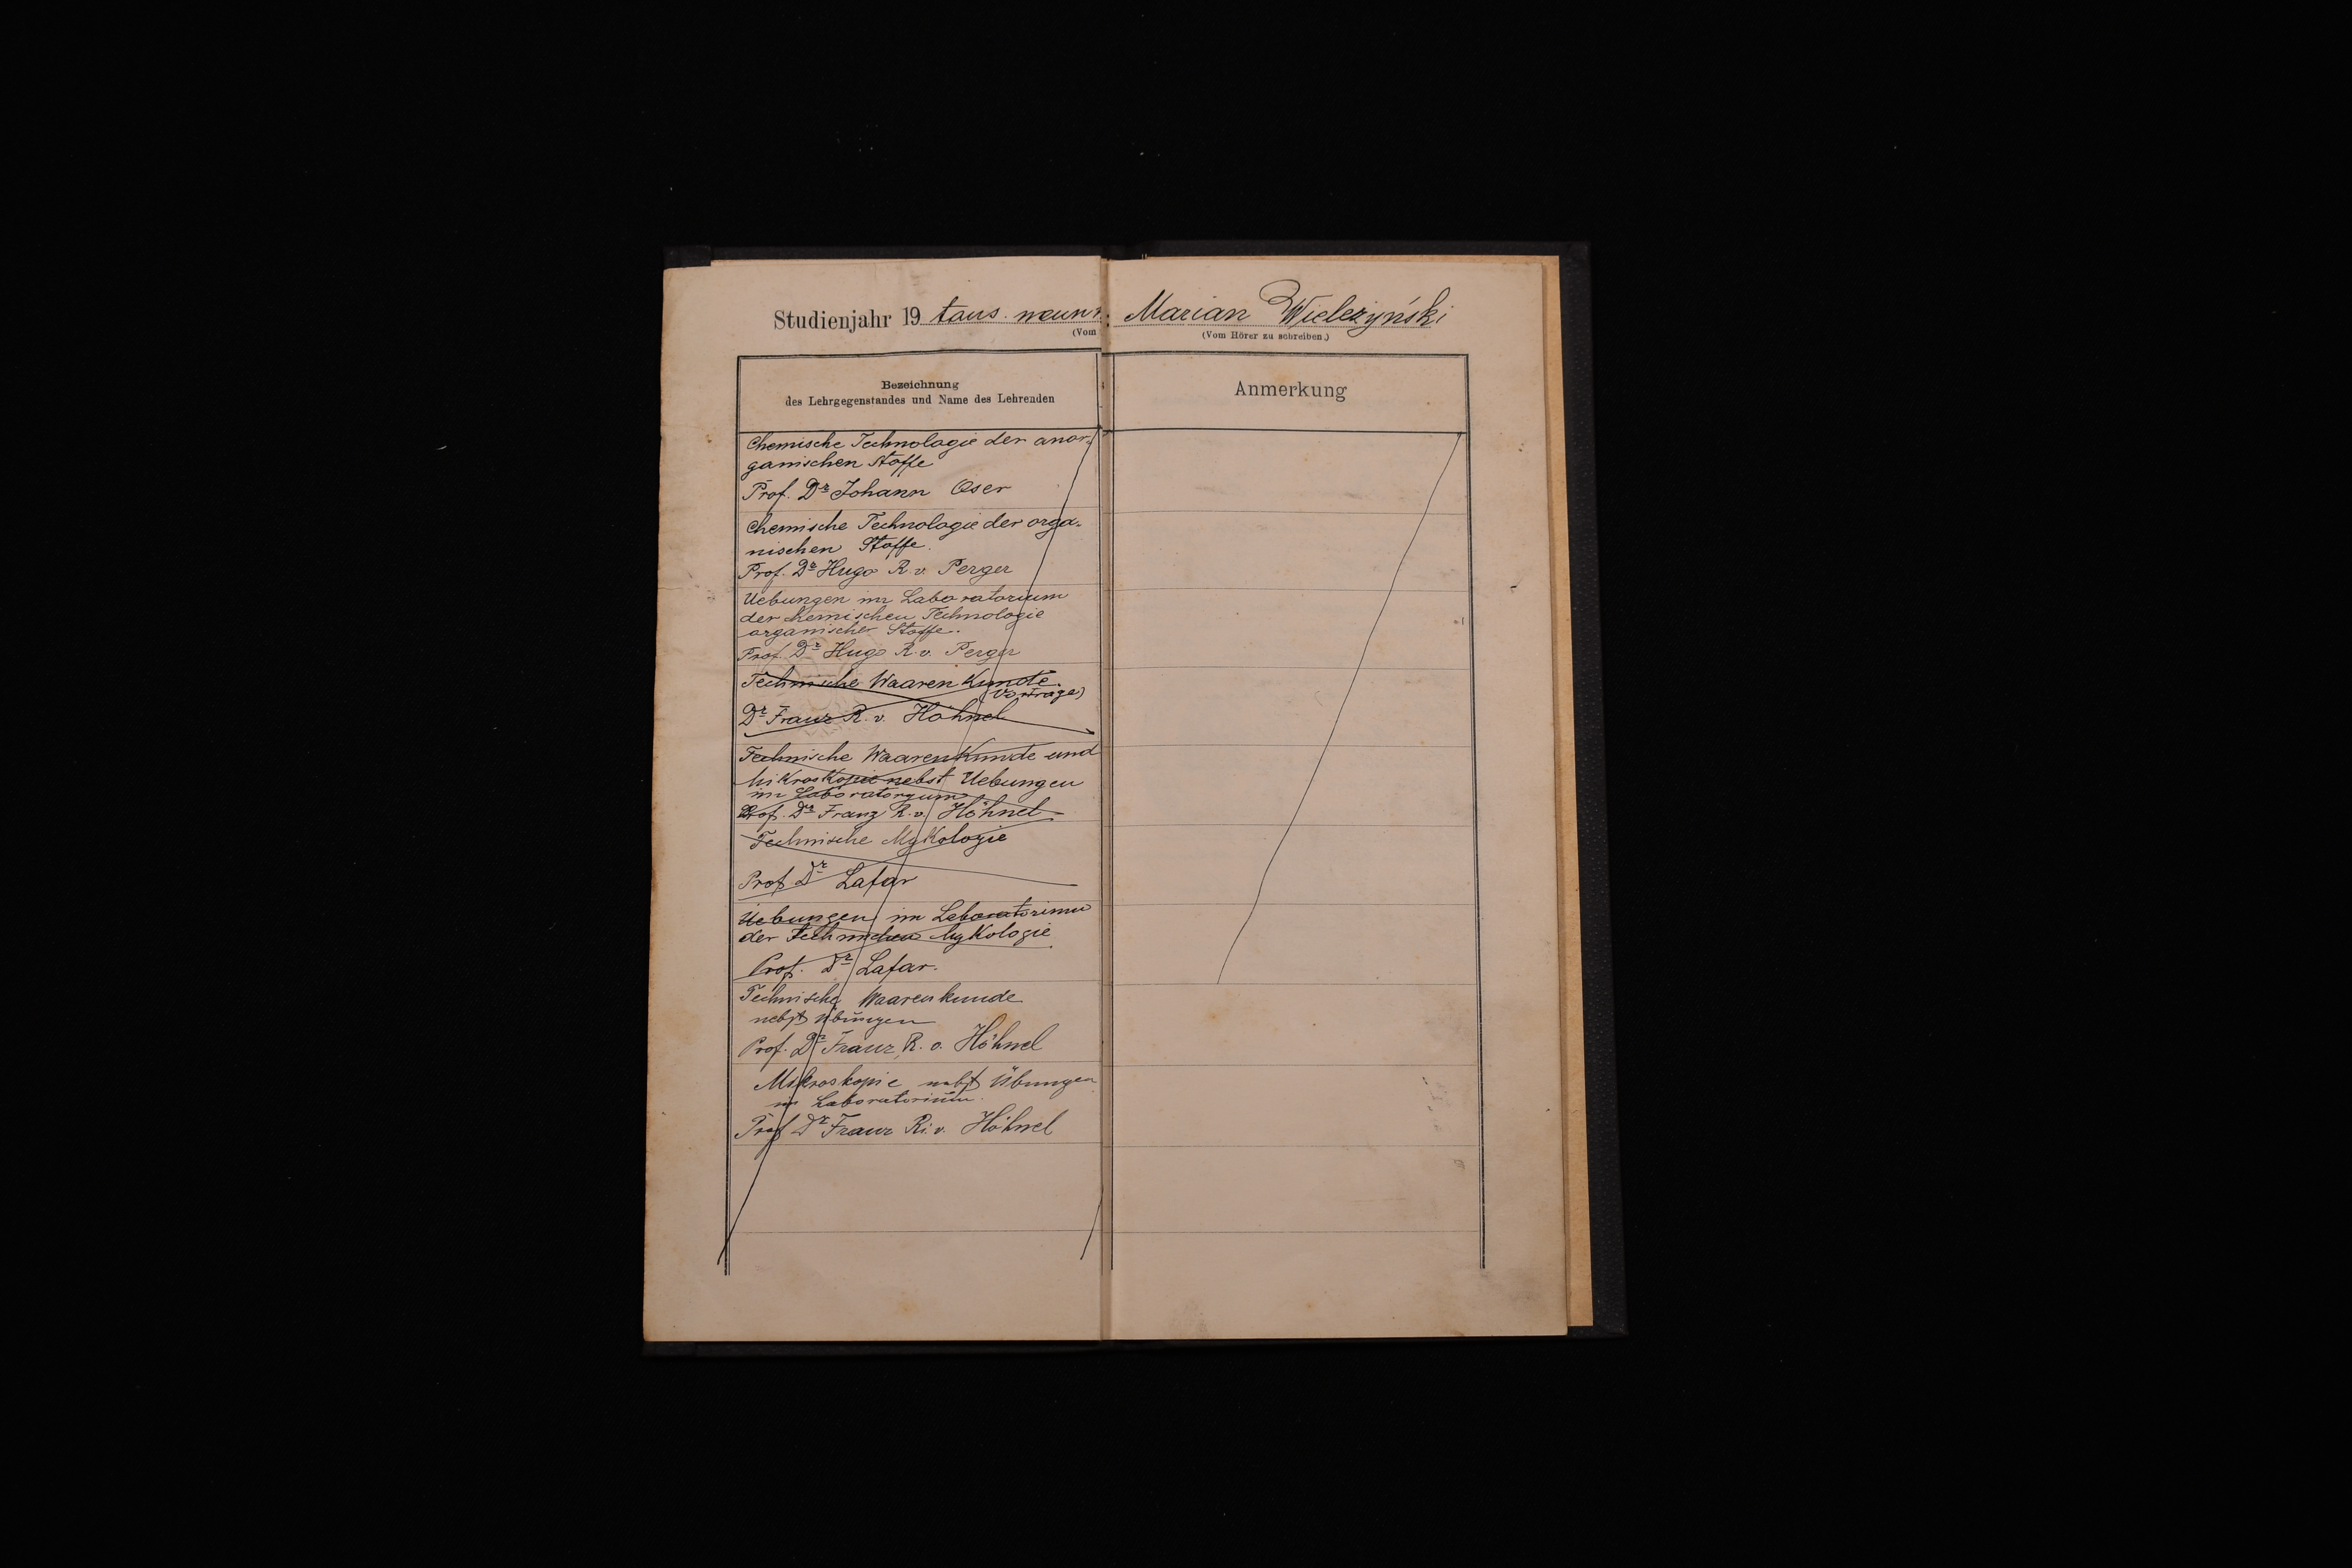 Studienjahr 19 taus. neun
(Vom
Bezeichnung
des Lehrgegenstandes und Name des Lehrenden
Chemische Technologie der anor-
ganischen Stoffe
Prof. Dr Johann Oser
Chemische Technologie der orga-
nischen Stoffe.
Prof. Dr Hugo R. v. Perger
Uebungen im Laboratorium
der chemischen Technologie
organischer Stoffe.
Prof. Dr Hugo R. v. Perger
Technische Waaren Kunde.
(Vorträge)
Dr Franz R. v. Höhnel
Technische WaarenKunde und
MiKrosKopie nebst Uebungen
im Laboratoryum
Prof. Dr Franz R. v. Höhnel
Technische MyKologie
Prof Dr Lafar
Uebungen im Leboratorium
der Technischen MyKologie
Prof. Dr Lafar.
Technische Waarenkunde
nebst Übungen
Prof. Dr Franz R. v. Höhnel
Mikroskopie nebst Übungen
im Laboratorium.
Prof Dr Franz R. v. Höhnel
Marian Wieleżyński
(Vom Hörer zu schreiben.)
Anmerkung